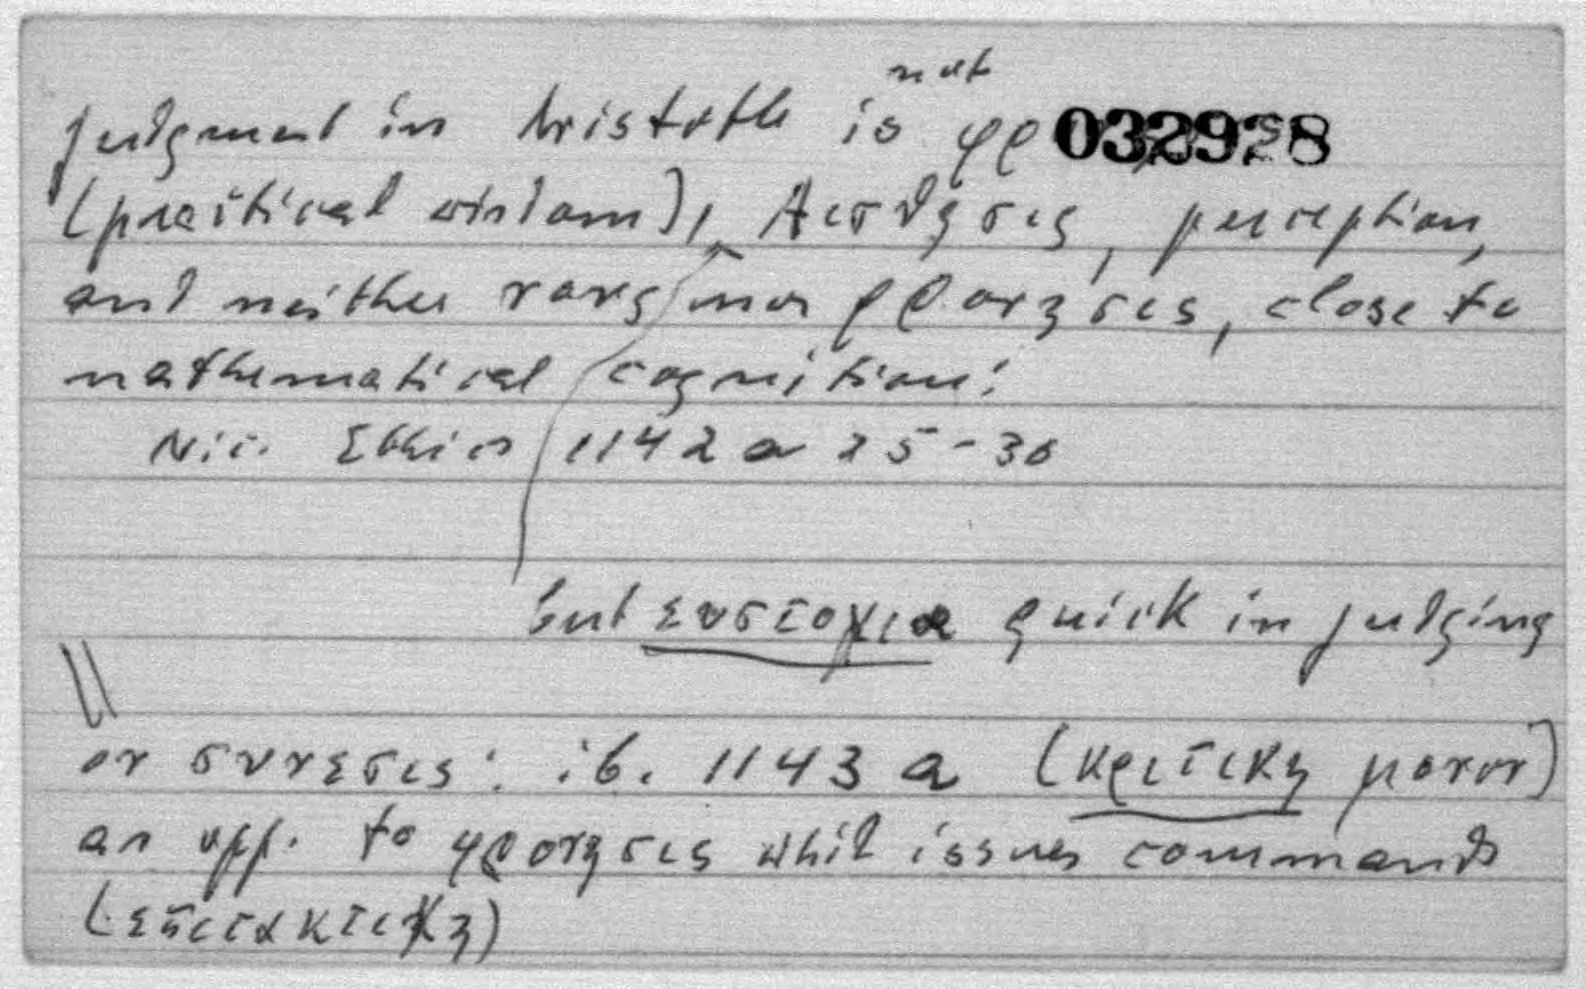 not
judgment in Aristotle is φρ 032928
(practical wisdom), Αισθησις, perception,
and neither νους nor φρονησις, close to
mathematical cognition:
Nic. Ethics 1142 a 25-30
but ευστοχια quick in judging
or συνεσις: ib. 1143 a (κριτικη μονον)
as opp. to φρονησις which issues commands
(επιτακτικη)